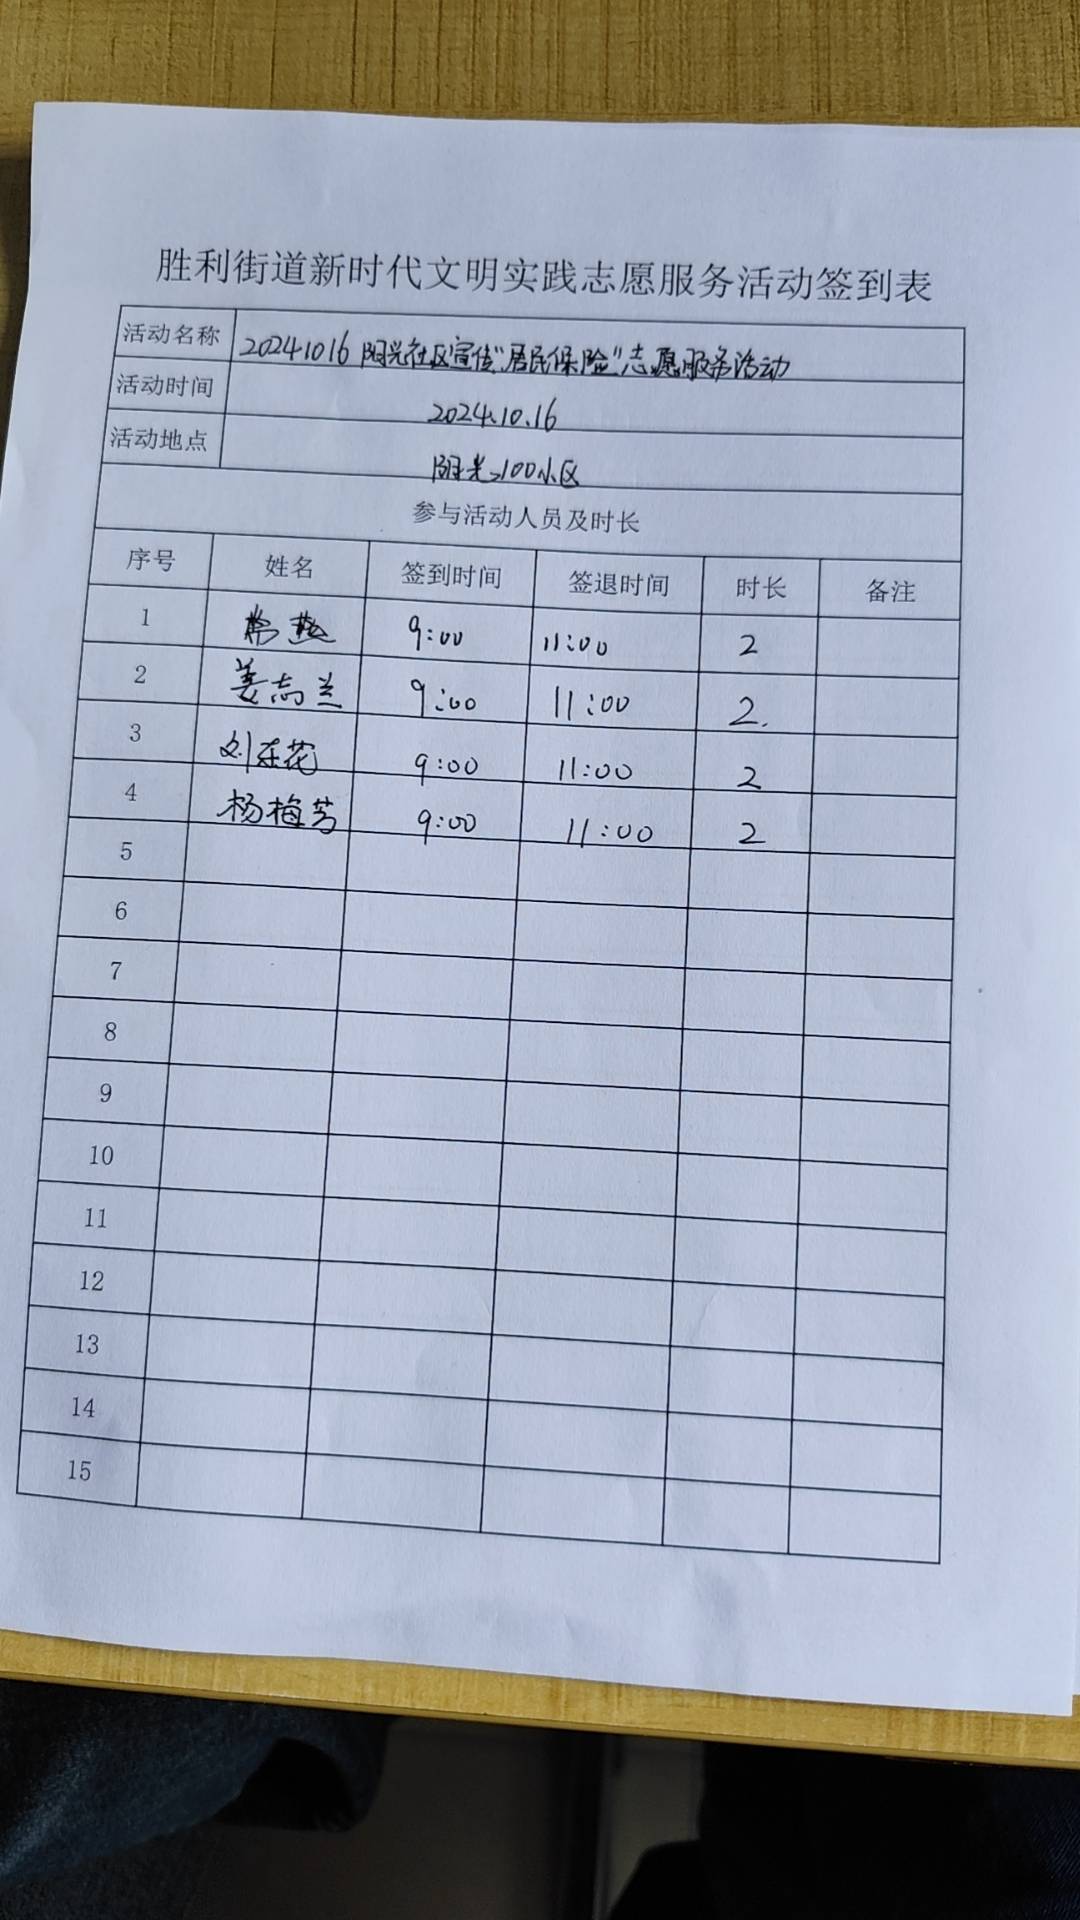 胜利街道新时代文明实践志愿服务活动签到表
活动名称 20241016 阳光社区宣传"居民保险"志愿服务活动
活动时间 2024.10.16
活动地点 阳光100小区
参与活动人员及时长
序号 姓名 签到时间 签退时间 时长 备注
1 9:00 11:00 2
2 姜志兰 9:00 11:00 2.
3 刘 花 9:00 11:00 2
4 杨梅芳 9:00 11:00 2
5
6
7
8
9
10
11
12
13
14
15